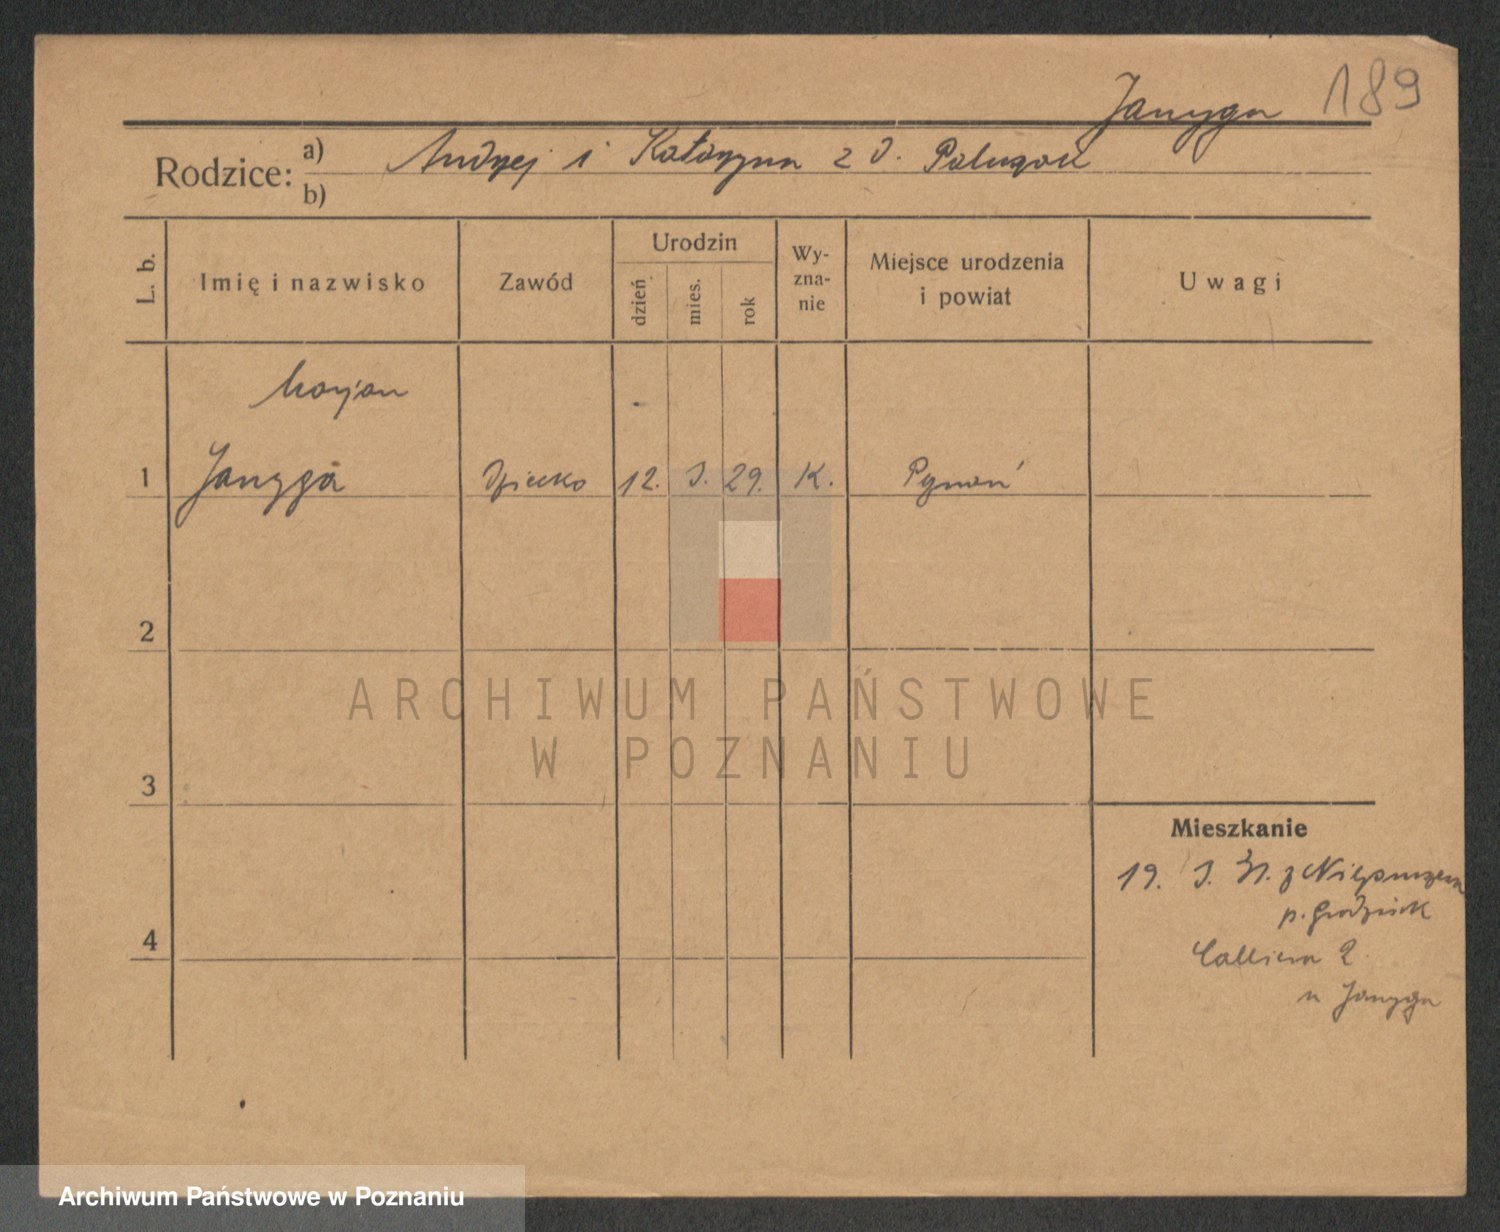 189
Janyga
Rodzice: a) Andrzej i Katarzyna z d.
b)
L. b.
Imię i nazwisko
Zawód
Urodzin
dzień
mies.
rok
Wy-
zna-
nie
Miejsce urodzenia
i powiat
Uwagi
Marjan
1 Janyga dziecko 12. I. 29. K. Poznań
2
3
4
Mieszkanie
19. I. 31. z
p. Grodzisk
Calliera 2
u Janyga
ARCHIWUM PAŃSTWOWE
W POZNANIU
Archiwum Państwowe w Poznaniu